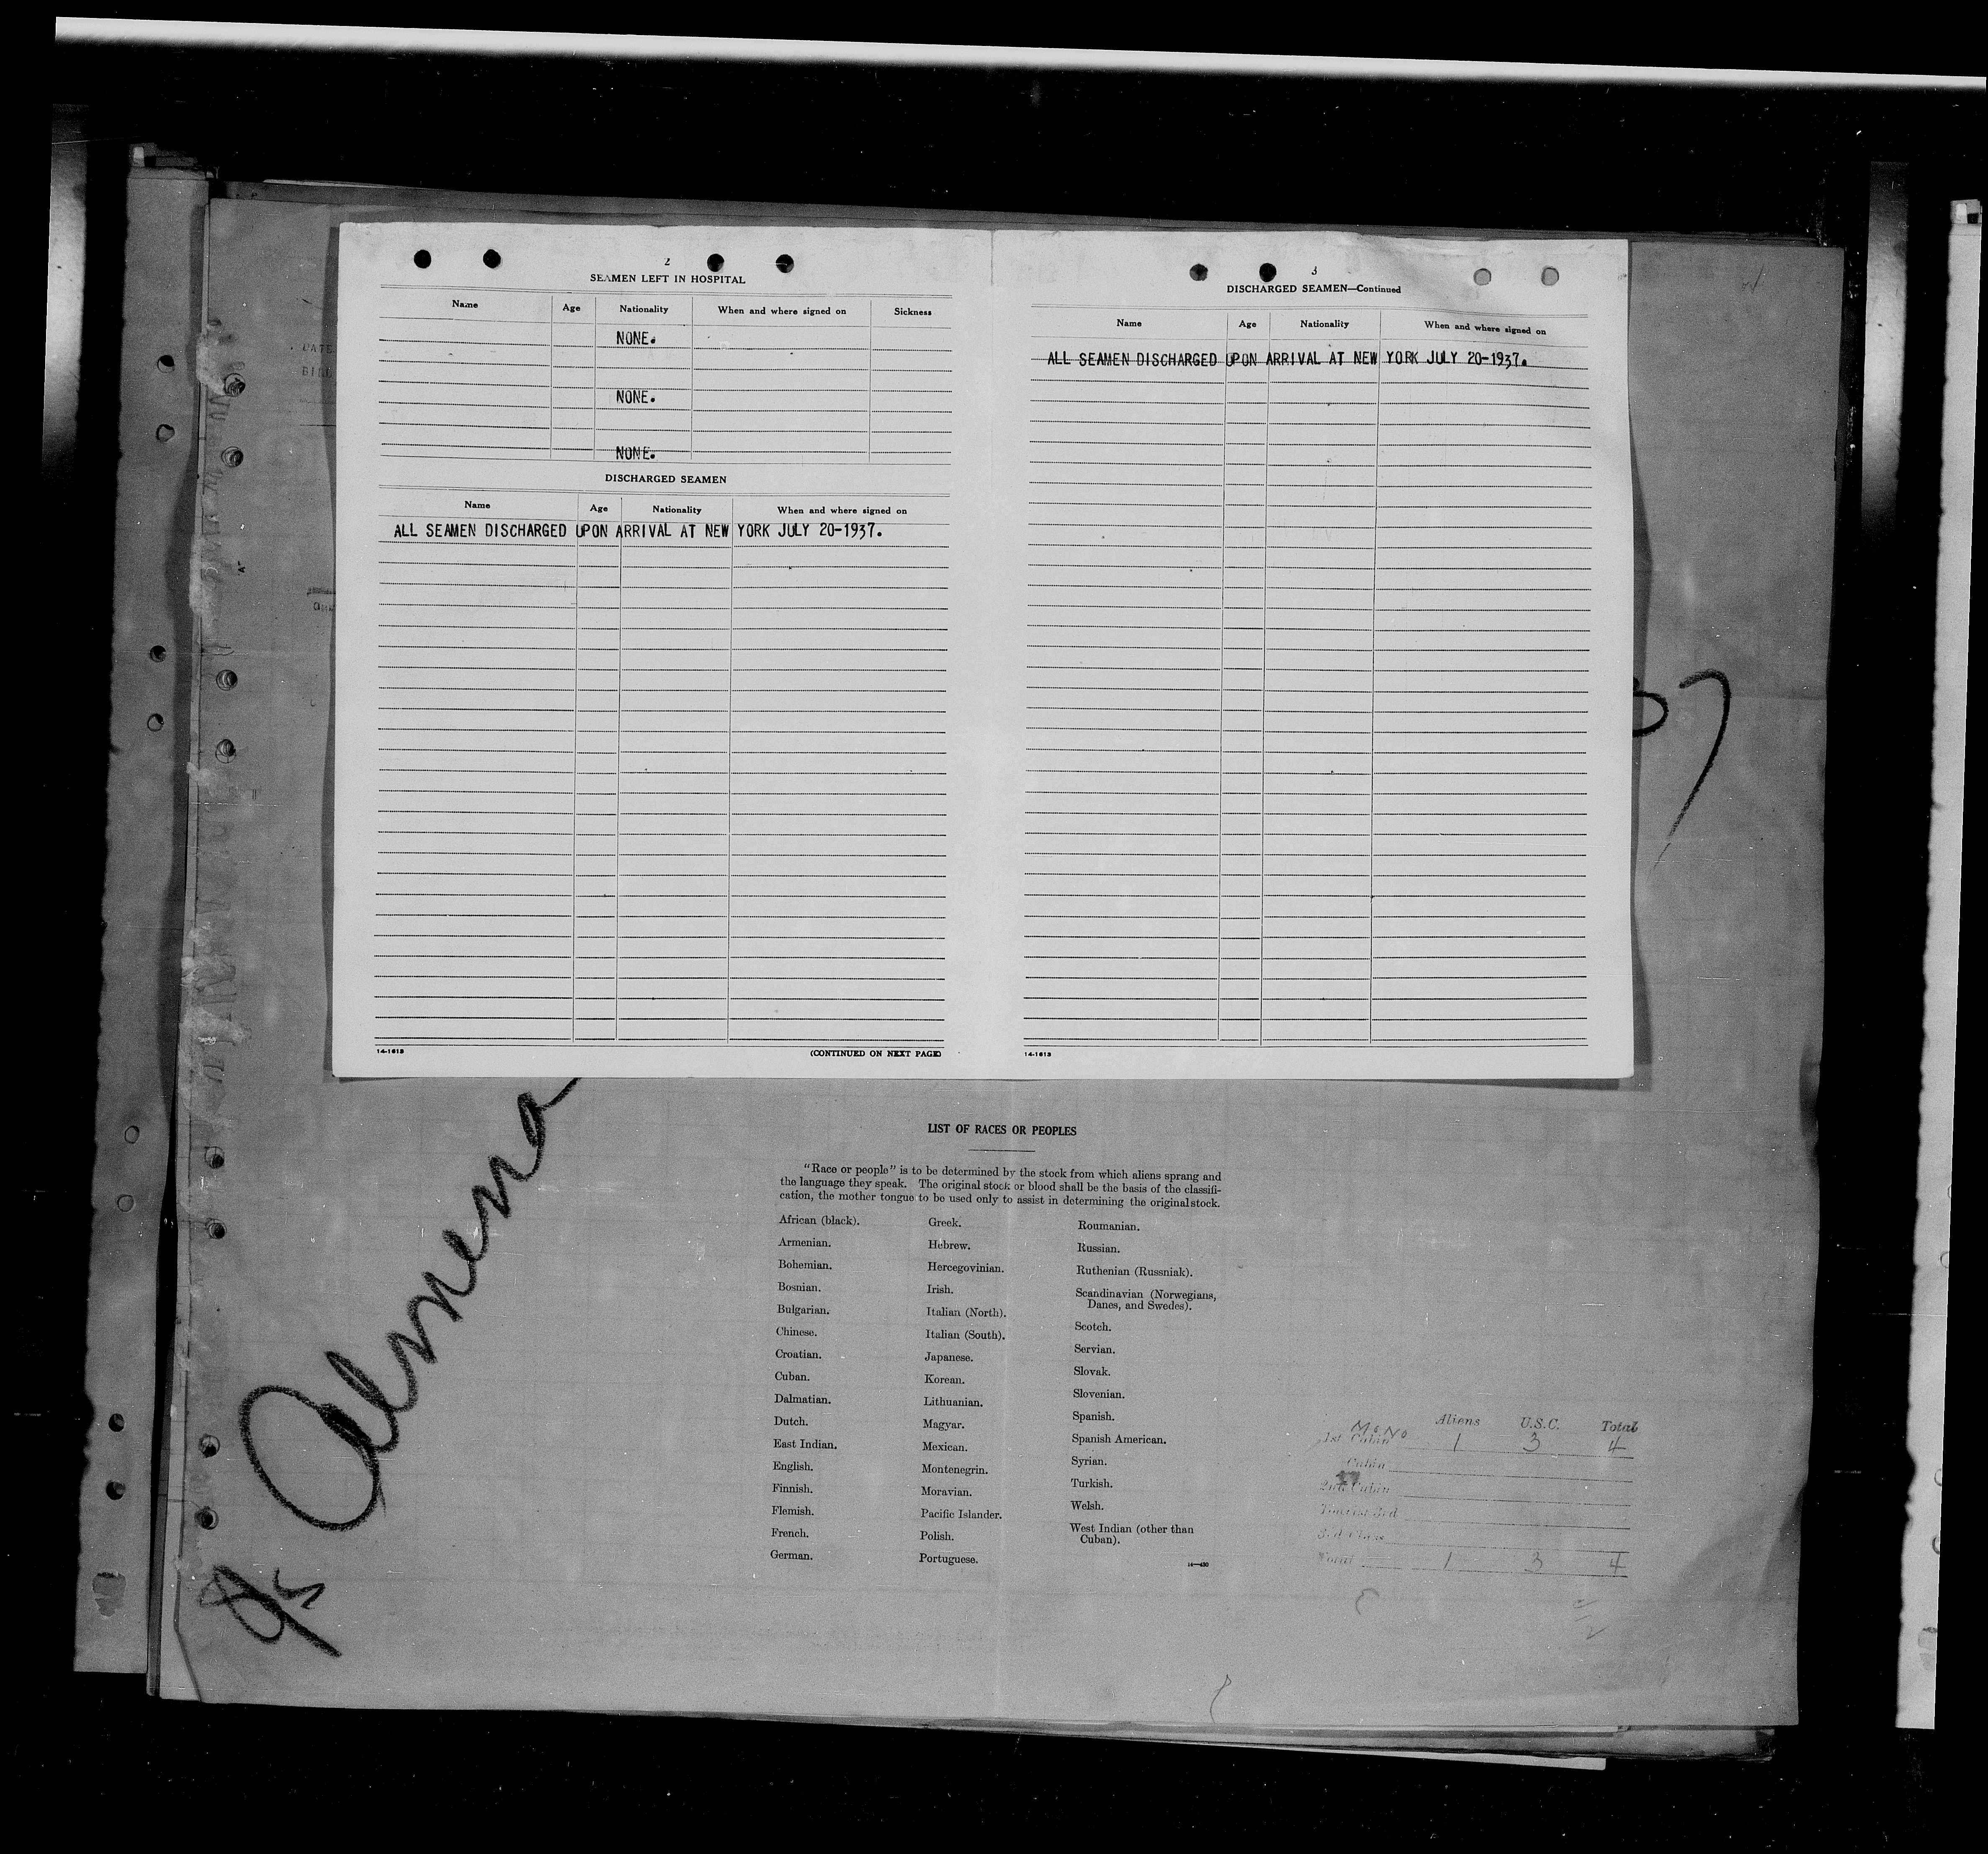 2
SEAMEN LEFT IN HOSPITAL
Name Age Nationality When and where signed on Sickness
NONE.
NONE.
NONE.
DISCHARGED SEAMEN
Name Age Nationality When and where signed on
ALL SEAMEN DISCHARGED UPON ARRIVAL AT NEW YORK JULY 20-1937.
14-1613 (CONTINUED ON NEXT PAGE)
3
DISCHARGED SEAMEN—Continued
Name Age Nationality When and where signed on
ALL SEAMEN DISCHARGED UPON ARRIVAL AT NEW YORK JULY 20-1937.
14-1613
DATE
7
LIST OF RACES OR PEOPLES
"Race or people" is to be determined by the stock from which aliens sprang and
the language they speak. The original stock or blood shall be the basis of the classifi-
cation, the mother tongue to be used only to assist in determining the original stock.
African (black).
Armenian.
Bohemian.
Bosnian.
Bulgarian.
Chinese.
Croatian.
Cuban.
Dalmatian.
Dutch.
East Indian.
English.
Finnish.
Flemish.
French.
German.
Greek.
Hebrew.
Hercegovinian.
Irish.
Italian (North).
Italian (South).
Japanese.
Korean.
Lithuanian.
Magyar.
Mexican.
Montenegrin.
Moravian.
Pacific Islander.
Polish.
Portuguese.
Roumanian.
Russian.
Ruthenian (Russniak).
Scandinavian (Norwegians,
Danes, and Swedes).
Scotch.
Servian.
Slovak.
Slovenian.
Spanish.
Spanish American.
Syrian.
Turkish.
Welsh.
West Indian (other than
Cuban).
14—430
Aliens U.S.C. Total
1st Cabin 1 3 4
Cabin
2nd Cabin
Tourist 3rd
3rd Class
Total 1 3 4